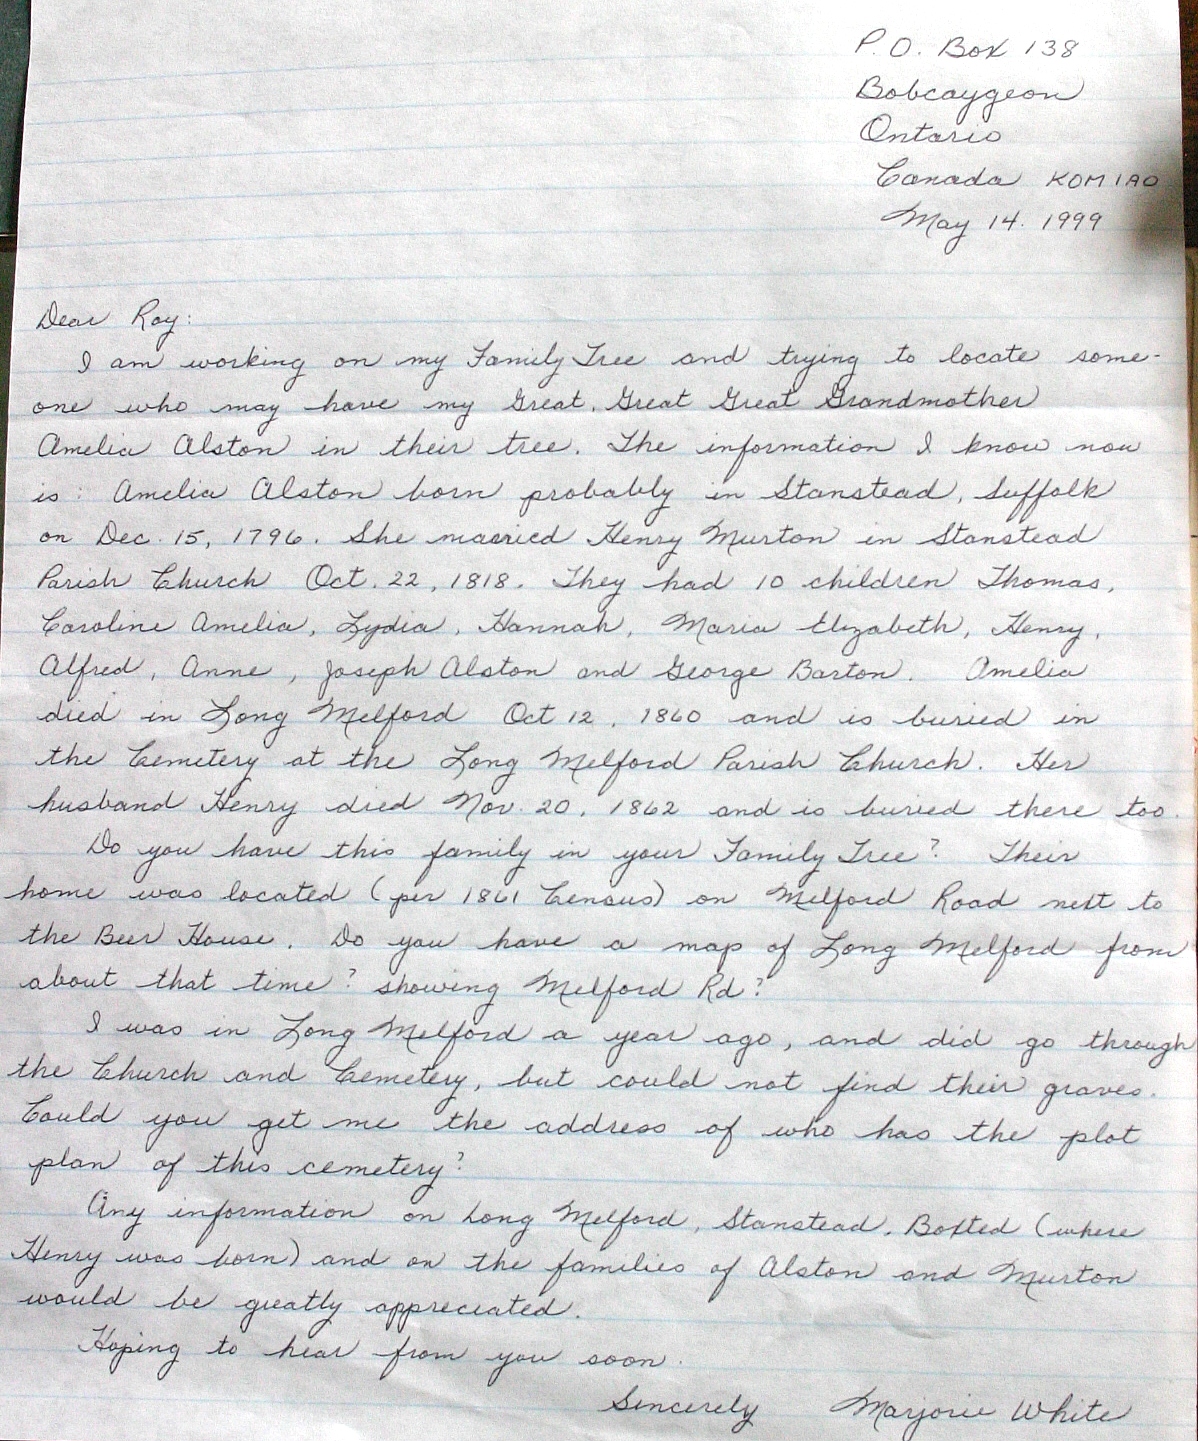 P.O. Box 138
Bobcaygeon
Ontario
Canada K0M 1A0
May 14. 1999
Dear Roy:
I am working on my Family Tree and trying to locate some-
one who may have my Great, Great Great Grandmother
Amelia Alston in their tree. The information I know now
is: Amelia Alston born probably in Stanstead, Suffolk
on Dec. 15, 1796. She married Henry Murton in Stanstead
Parish Church Oct. 22, 1818. They had 10 children Thomas,
Caroline Amelia, Lydia, Hannah, Maria Elizabeth, Henry,
Alfred, Anne, Joseph Alston and George Barton. Amelia
died in Long Melford Oct 12, 1860 and is buried in
the Cemetery at the Long Melford Parish Church. Her
husband Henry died Nov. 20, 1862 and is buried there too.
Do you have this family in your Family Tree? Their
home was located (per 1861 Census) on Melford Road next to
the Beer House. Do you have a map of Long Melford from
about that time? showing Melford Rd?
I was in Long Melford a year ago, and did go through
the Church and Cemetery, but could not find their graves.
Could you get me the address of who has the plot
plan of this cemetery?
Any information on Long Melford, Stanstead, Boxted (where
Henry was born) and on the families of Alston and Murton
would be greatly appreciated.
Hoping to hear from you soon.
Sincerely Marjorie White